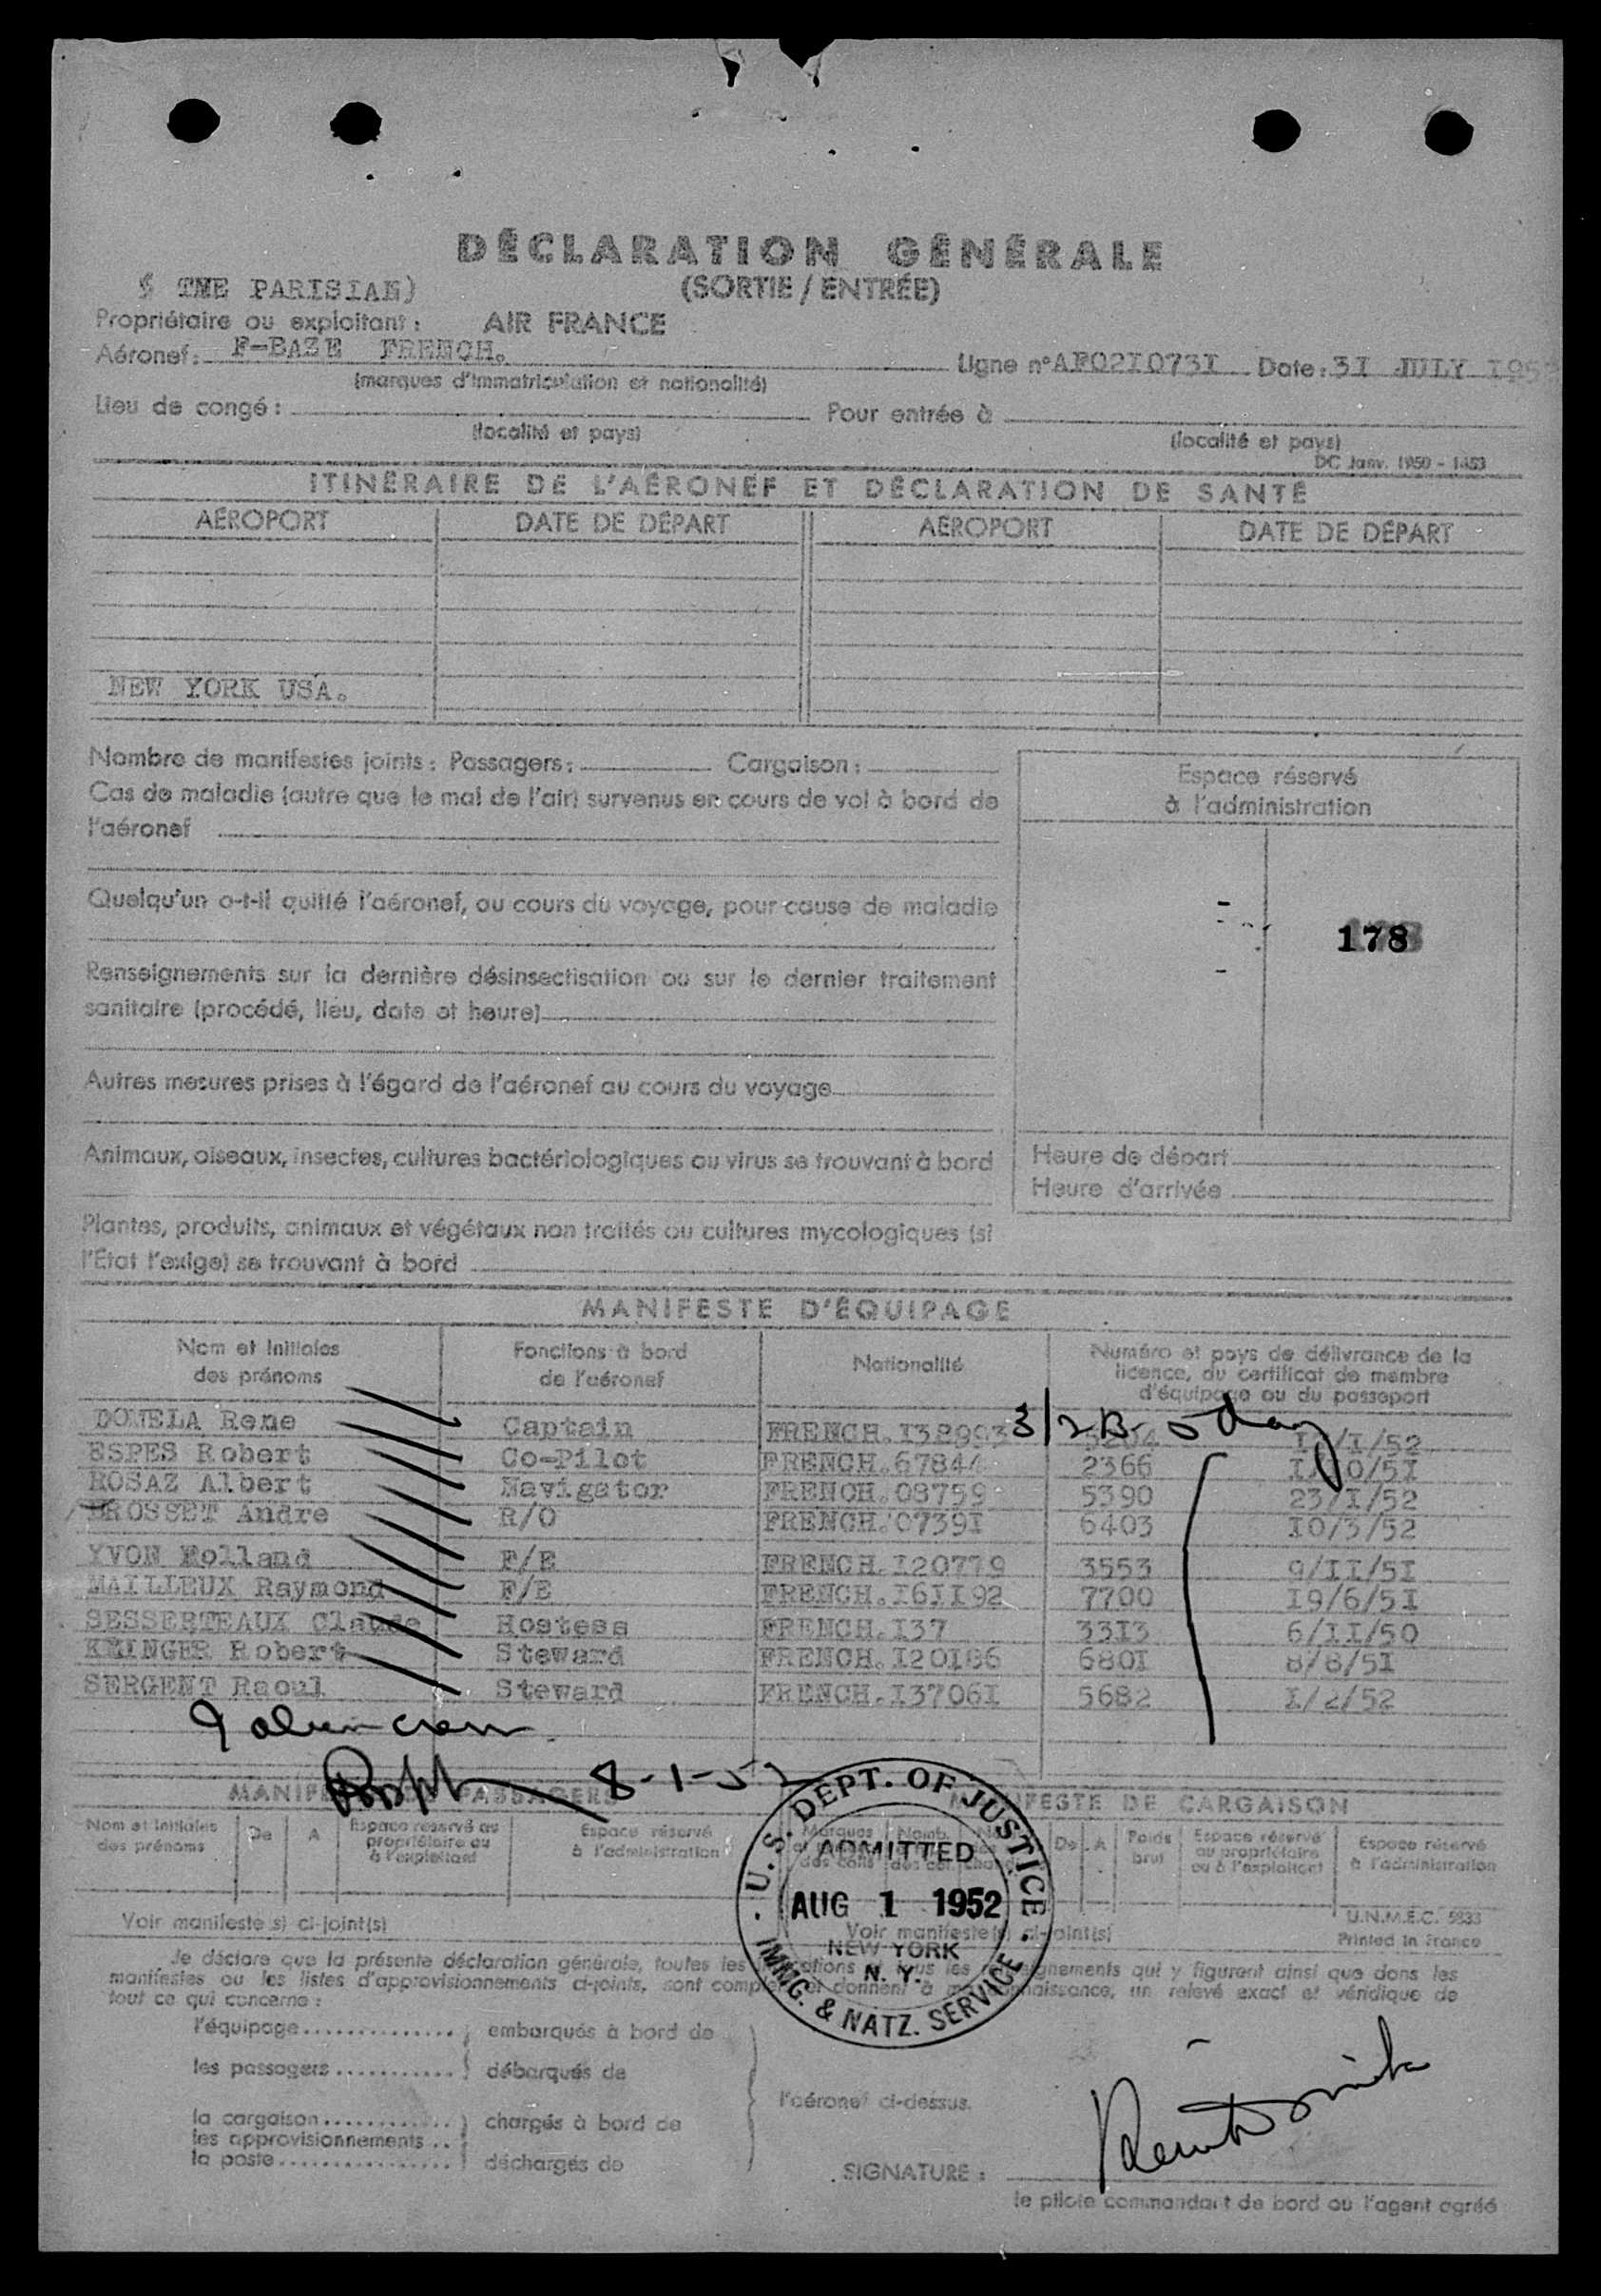 DÉCLARATION GÉNÉRALE
( THE PARISIAN)
(SORTIE / ENTRÉE)
Propriétaire ou exploitant : AIR FRANCE
Aéronef : F-BAZE FRENCH. Ligne n° AF021073I Date : 3I JULY I952
(marques d'immatriculation et nationalité)
Lieu de congé : Pour entrée à
(localité et pays) (localité et pays)
DC Janv. 1950 - 1453
ITINÉRAIRE DE L'AÉRONEF ET DÉCLARATION DE SANTÉ
AÉROPORT DATE DE DÉPART AÉROPORT DATE DE DÉPART
NEW YORK USA.
Nombre de manifestes joints : Passagers : Cargaison :
Cas de maladie (autre que le mal de l'air) survenus en cours de vol à bord de
l'aéronef
Espace réservé
à l'administration
Quelqu'un a-t-il quitté l'aéronef, au cours du voyage, pour cause de maladie
178
Renseignements sur la dernière désinsectisation ou sur le dernier traitement
sanitaire (procédé, lieu, date et heure)
Autres mesures prises à l'égard de l'aéronef au cours du voyage
Animaux, oiseaux, insectes, cultures bactériologiques ou virus se trouvant à bord
Heure de départ
Heure d'arrivée
Plantes, produits, animaux et végétaux non traités ou cultures mycologiques (si
l'État l'exige) se trouvant à bord
MANIFESTE D'ÉQUIPAGE
Nom et Initiales des prénoms Fonctions à bord de l'aéronef Nationalité Numéro et pays de délivrance de la licence, du certificat de membre d'équipage ou du passeport
3/2 B
DOUELA Rene Captain FRENCH. I38993 /I/52
ESPES Robert Co-Pilot FRENCH. 6784 2366 0/5I
ROSAZ Albert Navigator FRENCH. 08759 5390 23/I/52
BROSSET Andre R/O FRENCH. 0739I 6403 IO/3/52
YVON Rolland F/E FRENCH. I20779 3553 9/II/5I
MAILLEUX Raymond F/E FRENCH. I6II92 7700 I9/6/5I
SESSERTEAUX Claude Hostess FRENCH. I37 33I3 6/II/50
KRINGER Robert Steward FRENCH. I20I86 680I 8/8/5I
SERGENT Raoul Steward FRENCH. I3706I 5682 I/2/52
9 alien crew
8-1-52
MANIFESTE DE CARGAISON
Nom et Initiales des prénoms De A Espace réservé au propriétaire ou à l'exploitant Espace réservé à l'administration
De A Poids brut Espace réservé au propriétaire ou à l'exploitant Espace réservé à l'administration
U.S. DEPT. OF JUSTICE
ADMITTED
AUG 1 1952
NEW YORK
N. Y.
IMMG. & NATZ. SERVICE
Voir manifeste(s) ci-joint(s) Voir manifeste(s) ci-joint(s)
U.N.M.E.C. 5833
Printed in France
Je déclare que la présente déclaration générale, toutes les qui y figurent ainsi que dans les
manifestes ou les listes d'approvisionnements ci-joints, sont donnent à un relevé exact et véridique de
tout ce qui concerne :
l'équipage embarqués à bord de
les passagers débarqués de
l'aéronef ci-dessus.
la cargaison chargés à bord de
les approvisionnements
la poste déchargés de
SIGNATURE :
le pilote commandant de bord ou l'agent agréé